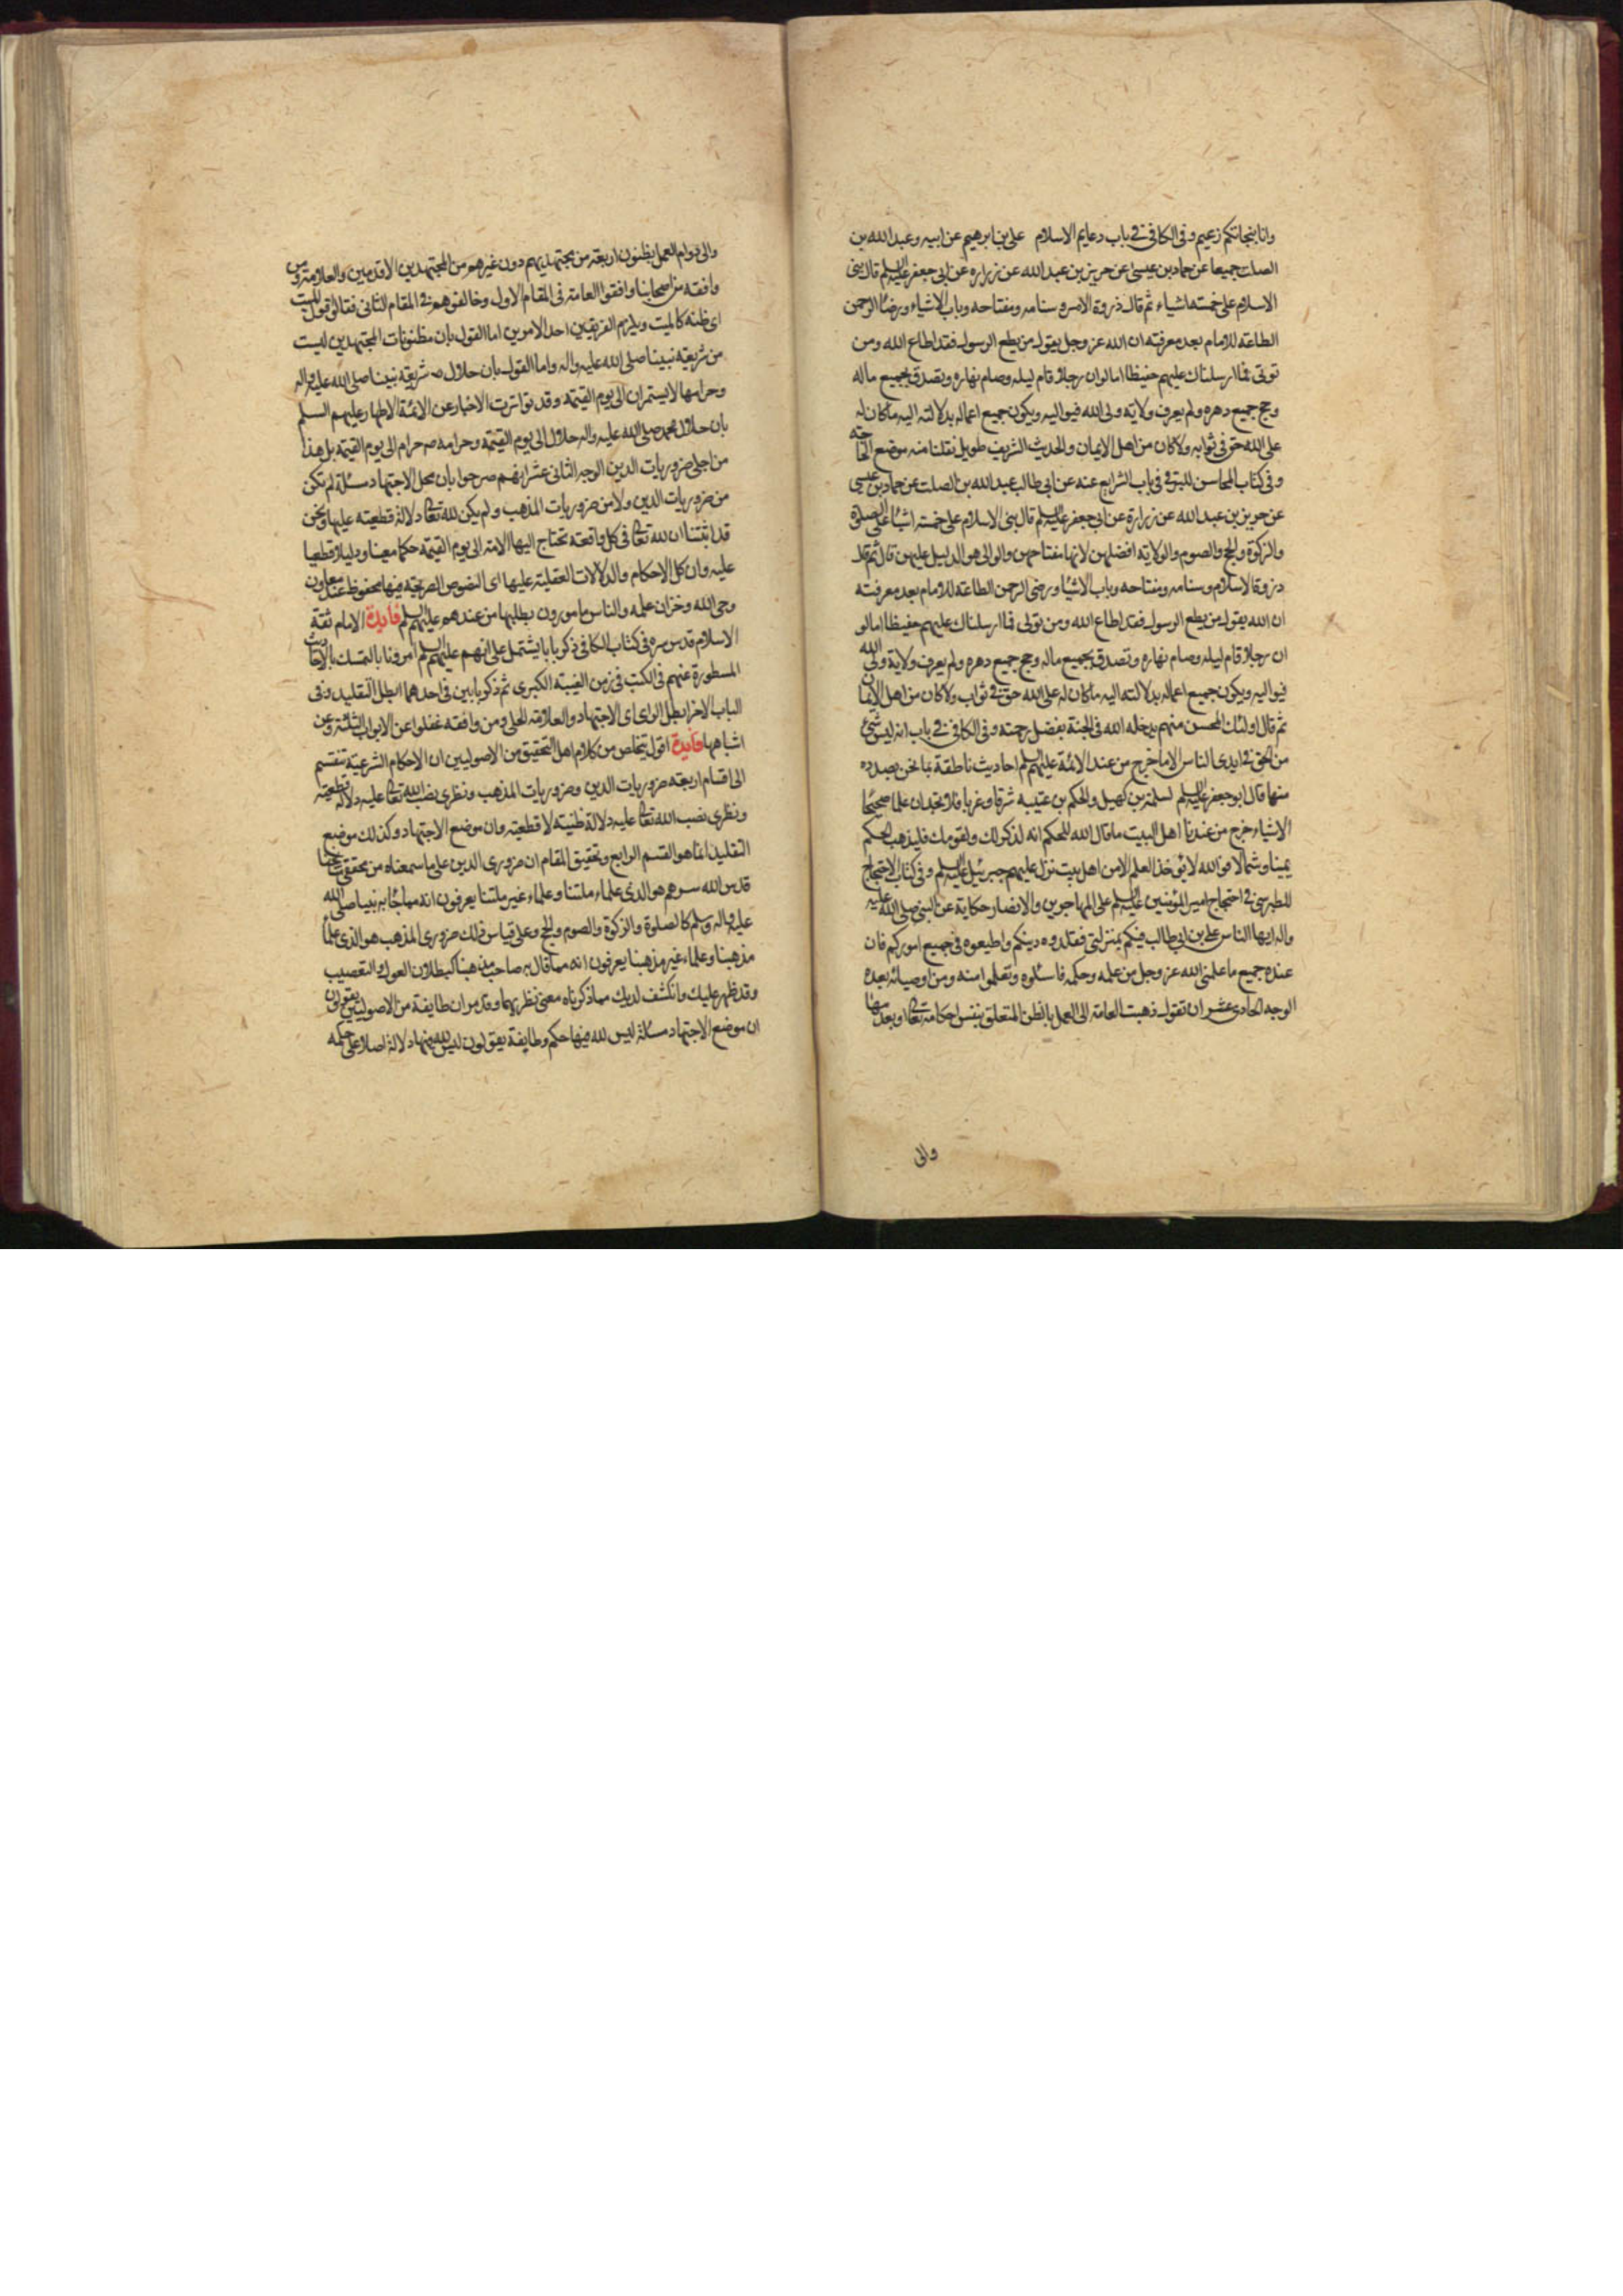 وانا بنجاتكم زعيم وفى الكافى فى باب دعايم الاسلام على بن ابرهيم عن ابيه وعبد الله بن
الصلت جميعا عن حماد بن عيسى عن حريز بن عبد الله عن زراره عن ابى جعفر عليه السلم قال بنى
الاسلام على خمسة اشياء ثم قال ذروة الامر و سنامه ومفتاحه وباب الاشياء ورضا الرحمن
الطاعة للامام بعد معرفته ان الله عز وجل يقول من يطع الرسول فقد اطاع الله ومن
تولى فما ارسلناك عليهم حفيظا اما لو ان رجلا قام ليله وصام نهاره وتصدق بجميع ماله
وحج جميع دهره ولم يعرف ولاية ولى الله فيواليه ويكون جميع اعماله بدلالته اليه ما كان له
على الله حق فى ثوابه ولا كان من اهل الايمان والحديث الشريف طويل نقلنا منه موضع الحاجة
وفى كتاب المحاسن للبرقى فى باب الشرايع عنه عن ابى طالب عبد الله بن الصلت عن حماد بن عيسى
عن حريز بن عبد الله عن زرارة عن ابى جعفر عليه السلم قال بنى الاسلام على خمسة اشيا على الصلوة
والزكوة والحج والصوم والولاية افضلهن لانها مفتاحهن والوالى هو الدليل عليهن قال ثم قال
ذروة الاسلام وسنامه ومفتاحه وباب الاشيا ورضى الرحمن الطاعة للامام بعد معرفته
ان الله يقول من يطع الرسول فقد اطاع الله ومن تولى فما ارسلناك عليهم حفيظا اما لو
ان رجلا قام ليله وصام نهاره وتصدق بجميع ماله وحج جميع دهره ولم يعرف ولاية ولى الله
فيواليه ويكون جميع اعماله بدلالته اليه ما كان له على الله حق فى ثواب ولا كان من اهل الايمان
ثم قال اولئك المحسن منهم يدخله الله فى الجنة بفضل رحمته وفى الكافى فى باب انه ليس شئ
من الحق فى ايدى الناس الا ما خرج من عند الائمة عليهم السلم احاديث ناطقة بما نحن بصدده
منها قال ابو جعفر عليه السلم لسلمة بن كهيل والحكم بن عتيبه شرقا وغربا فلا تجدان علما صحيحا
الا شياء خرج من عندنا اهل البيت ما قال الله للحكم انه لذكر لك ولقومك فليذهب الحكم
يمينا وشمالا فو الله لا يؤخذ العلم الا من اهل بيت نزل عليهم جبرئيل عليه السلم وفى كتاب الاحتجاج
للطبرسى فى احتجاج امير المؤمنين عليه السلم على المهاجرين والانصار حكاية عن النبى صلى الله عليه
واله ايها الناس على بن ابى طالب فيكم بمنزلتى فقلدوه دينكم واطيعوه فى جميع اموركم فان
عنده جميع ما علمنى الله عز وجل من علمه وحكمه فاسئلوه وتعلموا منه ومن اوصيائه بعده
الوجه الحادى عشر ان تقول ذهبت العامة الى العمل بالظن المتعلق بنفس احكامه تعالى او بعدمها
والى
والى دوام العمل بظنون اربعة من مجتهديهم دون غيرهم من المجتهدين الاقدمين والعلامة ومن
وافقه من اصحابنا وافقوا العامة فى المقام الاول وخالفوهم فى المقام الثانى فقالوا قول الميت
اى ظنه كالميت ويلزم الفريقين احد الامرين اما القول بان مظنونات المجتهدين ليست
من شريعة نبينا صلى الله عليه واله واما القول بان حلال شريعة نبينا صلى الله عليه واله
وحرامها لا يستمران الى يوم القيمة وقد تواترت الاخبار عن الائمة الاطهار عليهم السلم
بان حلال محمد صلى الله عليه واله حلال الى يوم القيمة وحرامه حرام الى يوم القيمة بل هذا
من اجلى ضروريات الدين الوجه الثانى عشر انهم صرحوا بان محل الاجتهاد مسئلة لم تكن
من ضروريات الدين ولا من ضروريات المذهب ولم يكن لله تعالى دلالة قطعية عليها ونحن
قد اثبتنا ان لله تعالى فى كل واقعة تحتاج اليها الامة الى يوم القيمة حكما معينا ودليلا قطعيا
عليه وان كل الاحكام والدلالات العقلية عليها اى النصوص الصريحة فيها محفوظ عند معادن
وحى الله وخزان علمه والناس مامورون بطلبها من عندهم عليهم السلم فايدة الامام ثقة
الاسلام قدس سره فى كتاب الكافى ذكر بابا يشتمل على انهم عليهم السلم امرونا بالتمسك بالاحاديث
المسطورة عنهم فى الكتب فى زمن الغيبة الكبرى ثم ذكر بابين فى احدهما ابطل التقليد وفى
الباب الاخر ابطل الراى اى الاجتهاد والعلامة الحلى ومن وافقه غفلوا عن الابواب الثلثة وعن
اشباهها فايدة اقول يتخلص من كلام اهل التحقيق من الاصوليين ان الاحكام الشرعية تنقسم
الى اقسام اربعة ضروريات الدين وضروريات المذهب ونظرى نصب الله تعالى عليه دلالة قطعية
ونظرى نصب الله تعالى عليه دلالة ظنية لا قطعية وان موضع الاجتهاد وكذلك موضع
التقليد انما هو القسم الرابع وتحقيق المقام ان ضرورى الدين على ما سمعناه من محققى مشايخنا
قدس الله سرهم هو الذى علماء ملتنا وعلماء غير ملتنا يعرفون انه مما جاء به نبينا صلى الله
عليه واله وسلم كالصلوة والزكوة والصوم والحج وعلى قياس ذلك ضرورى المذهب هو الذى علماء
مذهبنا وعلماء غير مذهبنا يعرفون انه مما قال به صاحب مذهبنا كبطلان العول والتعصيب
وقد ظهر عليك وانكشف لديك مما ذكرناه معنى نظريهما وقد مر ان طايفة من الاصوليين يقولون
ان موضع الاجتهاد مسئلة ليس لله فيها حكم وطايفة يقولون ليس لله فيها دلالة اصلا على حكمه